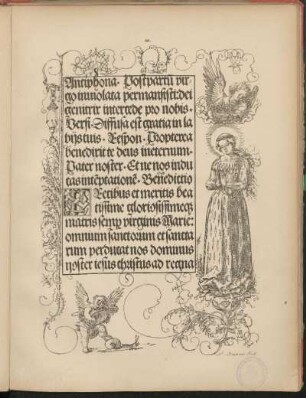 Antiphona. Post partū vir-
go inviolata permansisti: dei
genitrix intercede pro nobis.
Versi. Diffusa est gratia in la
bijs tuis. Respon. Propterea
benedixit te deus in eternum.
Pater noster. Et ne nos indu
cas in teptationē. Benedictio
Precibus et meritis bea
tissime gloriosissimeqʒ
matris semp virginis Marie:
omnium sanctorum et sancta
rum perducat nos dominus
noster iesus christus ad regna